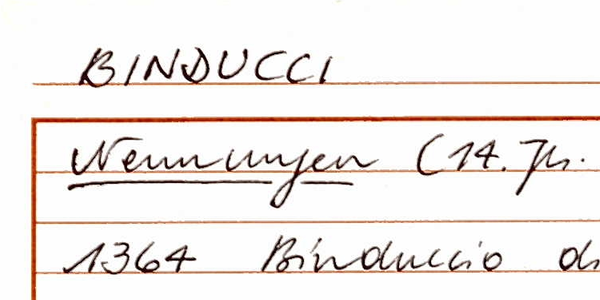 BINDUCCI
Nennungen (14. Jh.
1364 Binduccio di